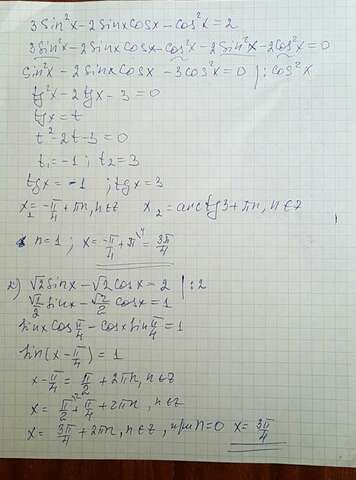 3sin²x-2sinxcosx-cos²x=2
3sin²x-2sinxcosx-cos²x-2sin²x-2cos²x=0
sin²x-2sinxcosx-3cos²x=0 |:cos²x
tg²x-2tgx-3=0
tgx=t
t²-2t-3=0
t₁=-1; t₂=3
tgx=-1 ; tgx=3
x₁=-π/4+πn, n∈z x₂=arctg3+πn, n∈z
n=1; x=-π/4+π=3π/4
2) √2sinx-√2cosx=2 |:2
√2/2 sinx-√2/2 cosx=1
sinxcosπ/4-cosxsinπ/4=1
sin(x-π/4)=1
x-π/4=π/2+2πn, n∈z
x=π/2+π/4+2πn, n∈z
x=3π/4+2πn, n∈z, при n=0 x=3π/4